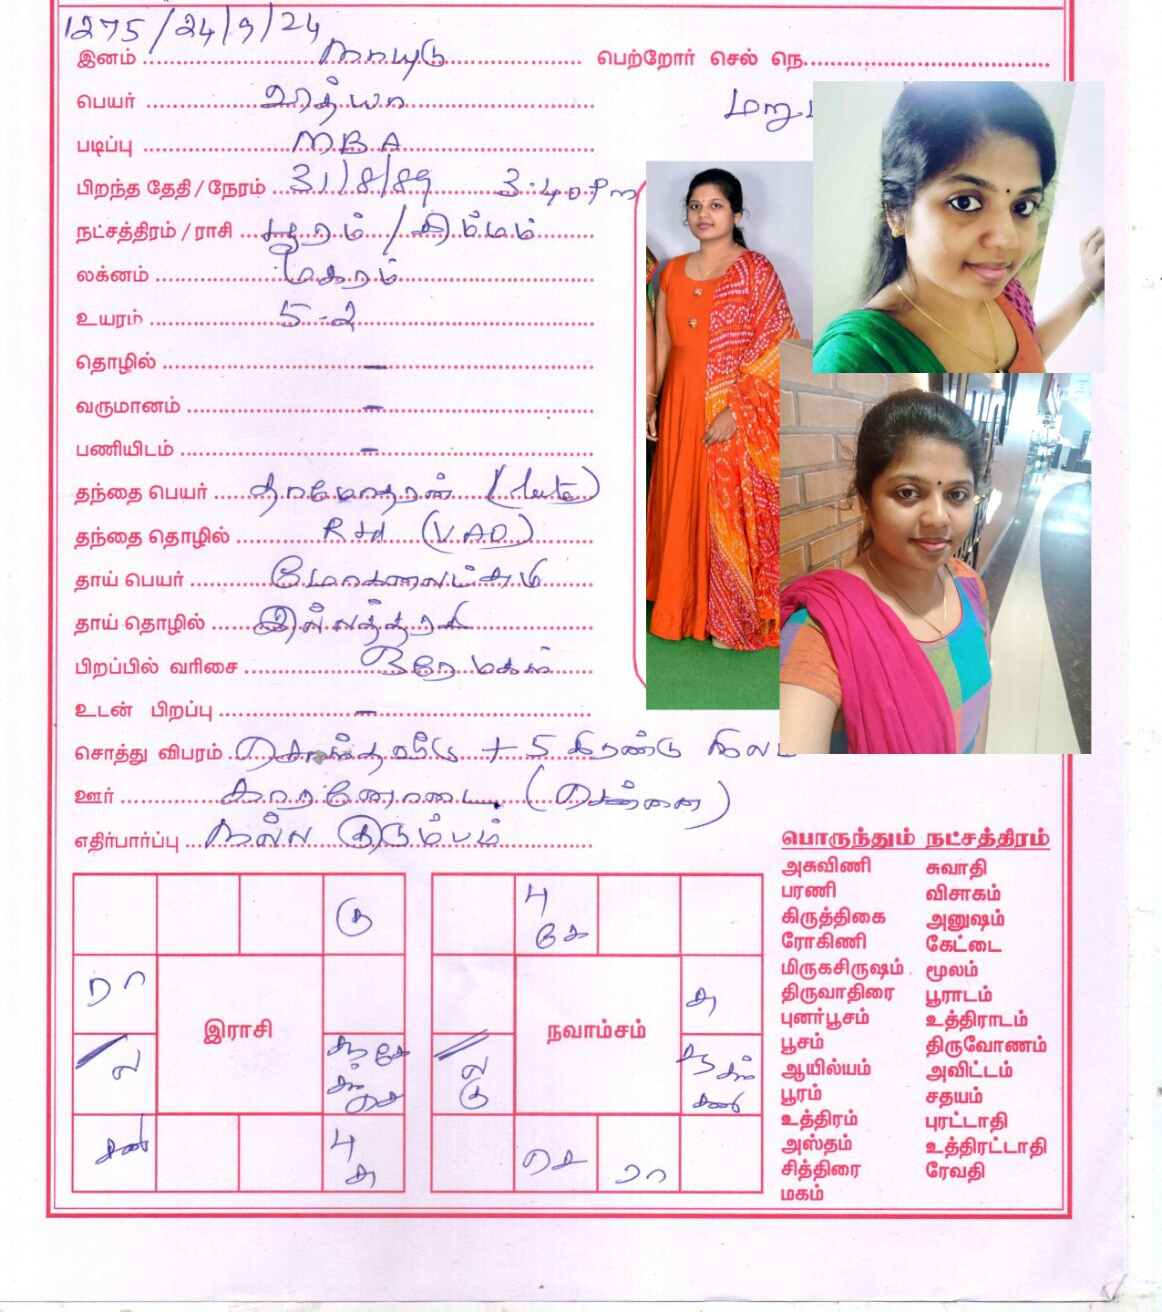 1275/24/9/24
இனம் நாயுடு பெற்றோர் செல் நெ.
பெயர்
மறு
படிப்பு MBA
பிறந்த தேதி / நேரம் 31/8/89 3.40 Pm
நட்சத்திரம் / ராசி பூரம் / சிம்மம்
லக்னம் மகரம்
உயரம் 5-2
தொழில் -
வருமானம் -
பணியிடம் -
தந்தை பெயர் தாமோதரன் (Late)
தந்தை தொழில் Rtd (VAO)
தாய் பெயர் மோகனலட்சுமி
தாய் தொழில் இல்லத்தரசி
பிறப்பில் வரிசை ஒரே மகள்
உடன் பிறப்பு -
சொத்து விபரம் சொந்தவீடு + 5 கிரண்டு நிலம்
ஊர் காரனோடை (சென்னை)
எதிர்பார்ப்பு நல்ல குடும்பம்
கு
ரா
இராசி
ல
சூ கே
சுக்
செ
சனி
பு
சு
பு
கே
சு
நவாம்சம்
ல
கு
சனி
செ ரா
பொருந்தும் நட்சத்திரம்
அசுவிணி சுவாதி
பரணி விசாகம்
கிருத்திகை அனுஷம்
ரோகிணி கேட்டை
மிருகசிருஷம் மூலம்
திருவாதிரை பூராடம்
புனர்பூசம் உத்திராடம்
பூசம் திருவோணம்
ஆயில்யம் அவிட்டம்
பூரம் சதயம்
உத்திரம் புரட்டாதி
அஸ்தம் உத்திரட்டாதி
சித்திரை ரேவதி
மகம்